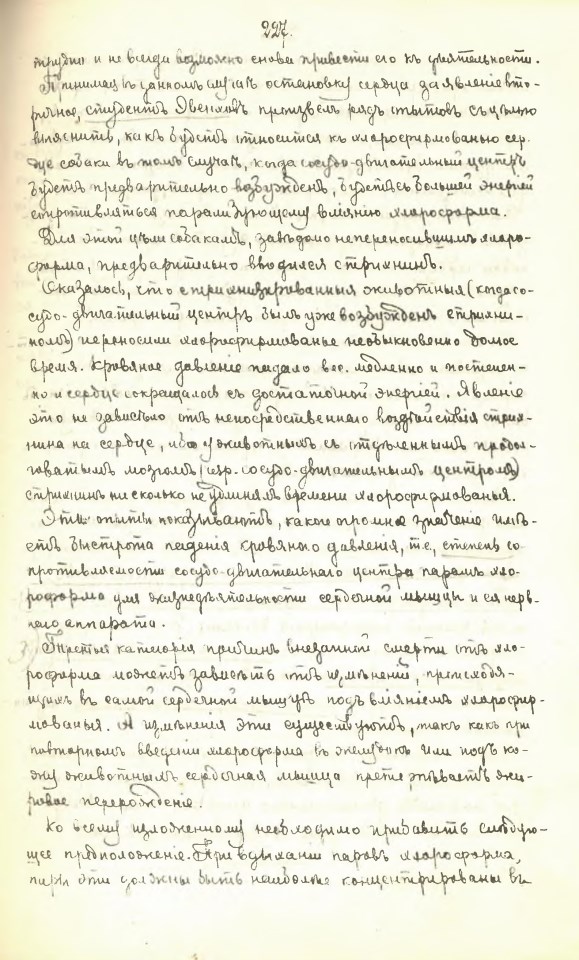 227.
трудно и не всегда возможно снова привести его къ дѣятельности.
Принимая въ данномъ случаѣ остановку сердца за явленіе вто-
ричное, студентъ произвелъ рядъ опытовъ съ цѣлью
выяснить, какъ будетъ относится къ хлороформованью сер-
дце собаки въ томъ случаѣ, когда сосудо-двигательный центръ
будетъ предварительно возбужденъ, будетъ съ большей энергіей
сопротивляться парализующему вліянію хлороформа.
Для этой цѣли собакамъ, завѣдомо непереносившимъ хлоро-
форма, предварительно вводился стрихнинъ.
Оказалось, что стрихнизированныя животныя (когда со-
судо-двигательный центръ былъ уже возбужденъ стрихни-
номъ) переносили хлороформованье необыкновенно долгое
время. Кровяное давленіе падало медленно и постепен-
но и сердце сокращалось съ достаточной энергіей. Явленіе
это не зависѣло отъ непосредственнаго воздѣйствія стрих-
нина на сердце, ибо у животныхъ съ отдѣленнымъ продол-
говатымъ мозгомъ (сосудо-двигательнымъ центромъ)
стрихнинъ нисколько не удлинялъ времени хлороформованья.
Эти опыты показываютъ, какое огромное значеніе имѣ-
етъ быстрота паденія кровяного давленія, т.е. степень со-
противляемости сосудо-двигательнаго центра парамъ хло-
роформа для жизнедѣятельности сердечной мышцы и ея нерв-
наго аппарата.
3) Третья категорія причинъ внезапной смерти отъ хло-
роформа можетъ зависѣть отъ измѣненій, происходя-
щихъ въ самой сердечной мышцѣ подъ вліяніемъ хлорофор-
мованья. А измѣненія эти существуютъ, такъ какъ при
повторномъ введеніи хлороформа въ желудокъ или подъ ко-
жу животнымъ сердечная мышца претерпѣваетъ жи-
ровое перерожденіе.
Ко всему изложенному необходимо прибавить слѣдую-
щее предположеніе. При вдыханіи паровъ хлороформа,
пары эти должны быть наиболѣе концентрированы въ